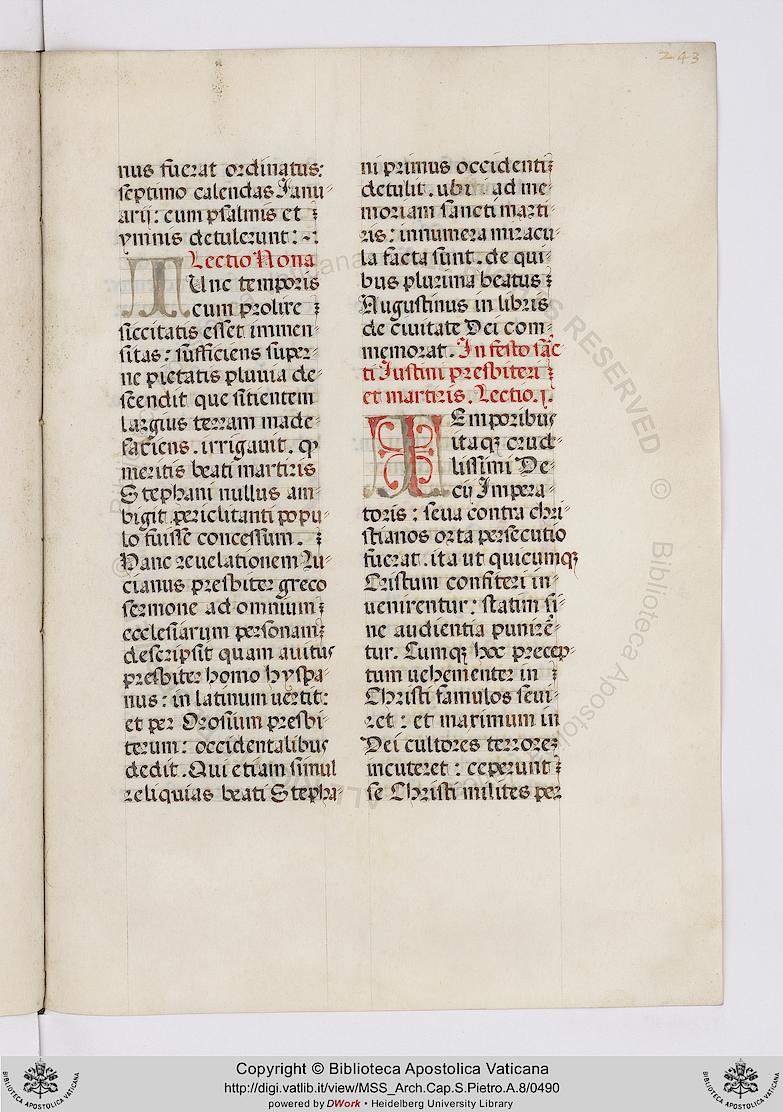 243
nus fuerat ordinatus:
septimo calendas Ianu-
arij: cum psalmis et
ymnis detulerunt:~:
Lectio Nona
Tunc temporis
cum prolixe
siccitatis esset immen-
sitas: sufficiens super-
ne pietatis pluuia de-
scendit que sitientem
largius terram made-
faciens. irrigauit. qꝫ
meritis beati martiris
Stephani nullus am-
bigit periclitanti popu-
lo fuisse concessum.
Hanc reuelationem Lu-
cianus presbiter greco
sermone ad omnium
ecclesiarum personam
descripsit quam auitus
presbiter homo hyspa-
nus: in latinum uertit:
et per Orosium presbi-
terum: occidentalibus
dedit. Qui etiam simul
reliquias beati Stepha-
ni primus occidenti
detulit. ubi ad me-
moriam sancti marti-
ris: innumera miracu-
la facta sunt. de qui-
bus plurima beatus
Augustinus in libris
de ciuitate Dei com-
memorat. In festo sāc
ti Iustini presbiteri
et martiris. Lectio. j.
Temporibus
itaqꝫ crude-
lissimi De-
cij Impera-
toris: seua contra chri-
stianos orta persecutio
fuerat. ita ut quicumqꝫ
Cristum confiteri in-
uenirentur: statim si-
ne audientia punirē-
tur. Cumqꝫ hoc precep-
tum uehementer in
Christi famulos seui-
ret: et maximum in
Dei cultores terrorem
incuteret: ceperunt
se Christi milites per
Copyright © Biblioteca Apostolica Vaticana
http://digi.vatlib.it/view/MSS_Arch.Cap.S.Pietro.A.8/0490
powered by DWork • Heidelberg University Library
BIBLIOTECA APOSTOLICA VATICANA
BIBLIOTECA APOSTOLICA VATICANA